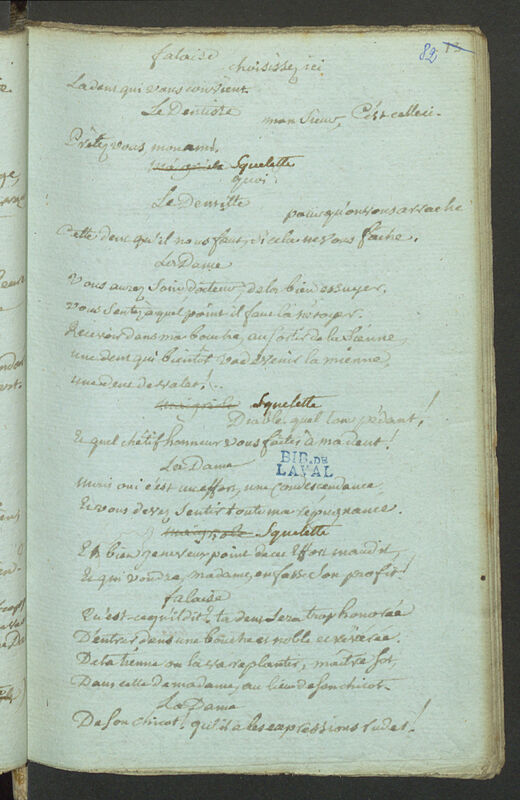 82
falaise
choisissez ici
La dent qui vous convient.
Le Dentiste
monsieur, C'est celle ci.
Prêtez vous mon ami.
Squelette
quoi.
Le Dentiste
pour qu'on vous arrache
Cette dent qu'il nous faut, si cela ne vous fache.
La Dame
Vous aurez soin docteur, de la bien essuyer.
Vous sentez à quel point il faut la nétoyer.
Recevoir dans ma bouche, au sortir de la Sienne,
une dent qui bientôt va devenir la mienne,
une dent de valet!..
Squelette
Diable quel ton pédant!
Et quel chétif honneur vous faites à ma dent!
La Dame
BIB. DE
LAVAL
Mais oui c'est un effort, une condescendance,
Et vous devez sentir toute ma repugnance.
Squelette
Eh bien je ne veux point de cet Effort maudit,
Et qui voudra, madame, en fasse son profit!
falaise
Qu'est-ce qu'il dit? ta dent sera trop honorée
D'entrer dans une bouche et noble et révérée.
De la tienne on la va replanter, maître sot,
Dans celle de madame, au lieu de son chicot.
La Dame
De son chicot! qu'il a les expressions rudes!